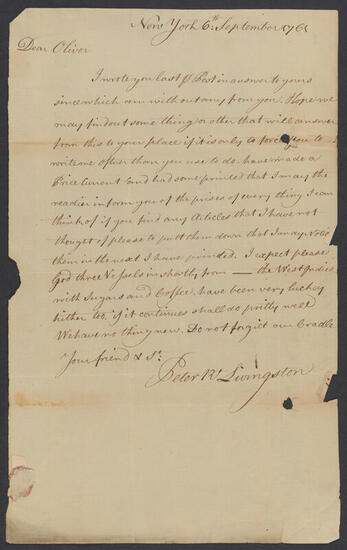 New York 6th September 1761
Dear Oliver
I wrote you last P Post in answer to yours
since which am without any from you. Hope we
may find out some thing or other that will answer
from this to your place if it is only to force you to
write me oftner than you use to do. have made a
Price Current and had some printed that I may the
readier inform you of the prises of every thing I can
think of if you find any Articles that I have not
thought of please to putt them down that I may Notice
them in the next I have printed. I expect please
God three Vessels in shortly from — the West Indies
with Sugars and Coffee, have been very luckey
hither too, if it continues shall do pritty well
We have no thing new. Do not forgitt our Cradle
Your friend & Sr.
Peter R Livingston